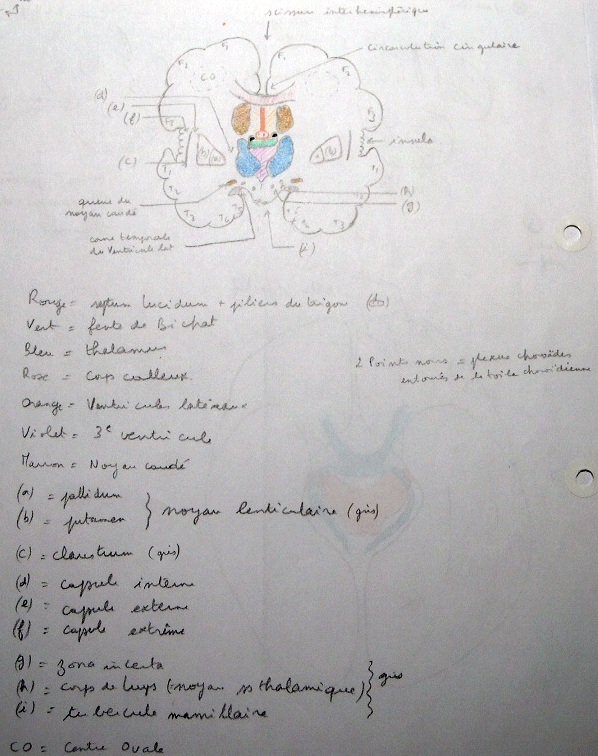 scissure interhémisphérique
circonvolution cingulaire
F1
F1
F2
F2
F3
CO
(d)
(e)
(f)
(c)
(b)
(a)
(b)
insula
T1
T1
T2
T3
T3
(h)
(g)
queue du
noyau caudé
corne temporale
du ventricule lat
(i)
Rouge = septum lucidum + piliers du trigone
Vert = fente de Bichat
Bleu = thalamus
Rose = Corps calleux.
2 Points noirs = plexus choroïdes
entourés de la toile choroïdienne
Orange = Ventricules latéraux
Violet = 3e ventricule
Marron = Noyau caudé
(a) = pallidum
(b) = putamen } noyau lenticulaire (gris)
(c) = claustrum (gris)
(d) = capsule interne
(e) = capsule externe
(f) = capsule extrême
(g) = zona incerta
(h) = corps de Luys (noyau ss thalamique) } gris
(i) = tubercule mamillaire
CO = Centre Ovale